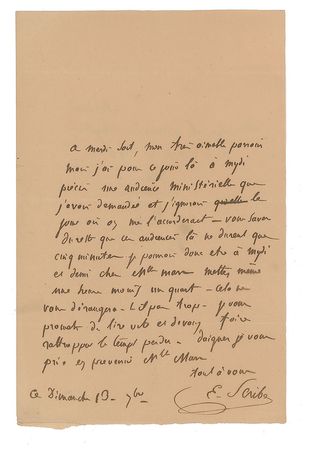 a mardi soit, mon très aimable parrain
mais j'ai pour ce jour là à mydi
précis une audience ministérielle que
j'avais demandée et j'ignorais le
jour où on me l'accorderait - vous savez
du reste que ces audiences là ne durent que
cinq minutes je pourrais donc etre à mydi
et demi chez Mlle Mars mettez même
une heure moins un quart - cela ne
vous dérangera-t-il pas trop - je vous
promets de lire vite et de
rattrapper le temps perdu. daignez je vous
prie en prévenir Mlle Mars
tout à vous
ce Dimanche 13 - 7bre E. Scribe